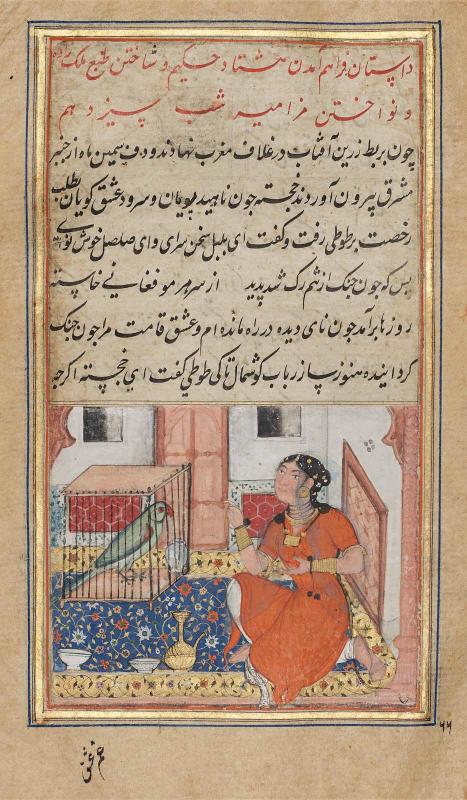 داستان فراهم آمدن هشتاد حکیم و شناختن طبع ملک زاده
و نواختن مزامیر شب سیزدهم
چون بربط زرین آفتاب در غلاف مغرب نهادند و دف سیمین ماه از چنبر
مشرق بیرون آوردند خجسته چون ناهید پویان و سرود عشق گویان بطلب
رخصت بر طوطی رفت و گفت ای بلبل سخن سرای و ای صلصل خوش نوای
بس که چون چنک از غم رک شد پدید از سر هر مو فغانی خاسته
روزها بر آمد چون نای دیده در راه مانده ام و عشق قامت مرا چون چنک
کردانیده هنوز ساز رباب کو شمال تا کی طوطی گفت ای خجسته اکرچه
۶۶